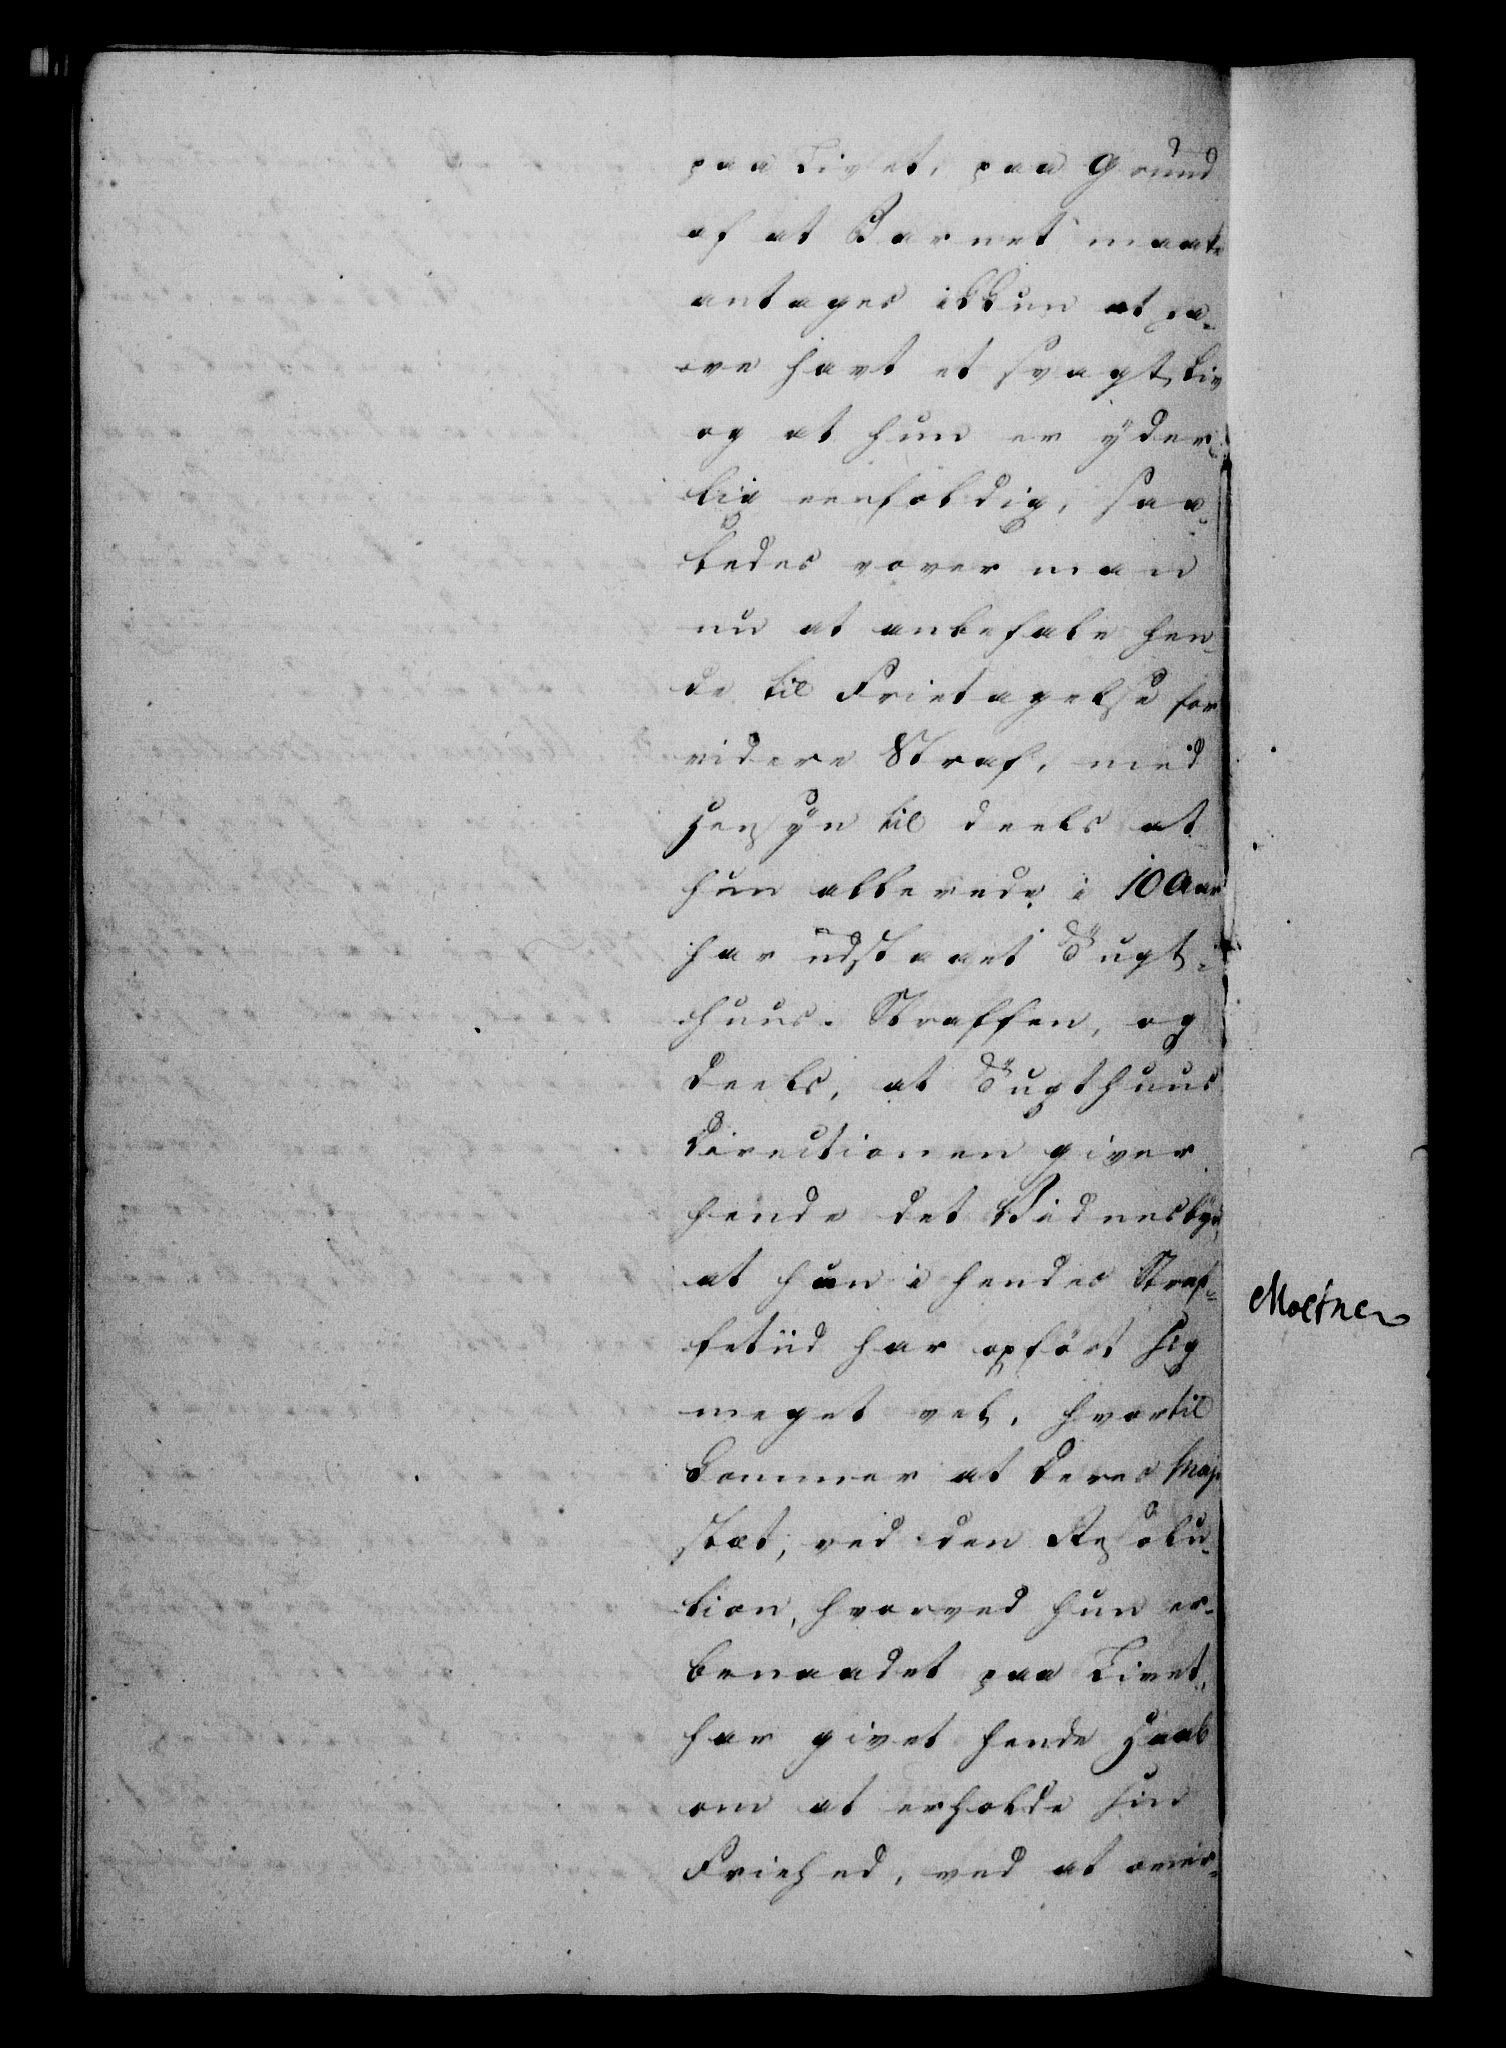 paa Livet, paa Grund
af at Barnet maatte
antages ikkun at ha-
ve havt et svagt Liv
og at hun er yder-
lig eenfoldig, saa-
ledes vover man
nu at anbefale hen-
de til Frietagelse for
videre Straf, med
Hensyn til deels at
hun allerede i 10 Aar
har udstaaet Tugt-
huus-Straffen, og
deels, at Tugthuus
Directionen giver
hende det Vidnesbyrd,
at hun i hendes Straf-
fetiid har opført sig
meget vel, hvortil
kommer at Deres Maje-
stæt, ved den Resolu-
tion, hvorved hun er
benaadet paa Livet,
har givet hende Haab
om at erholde sin
Friehed, ved at